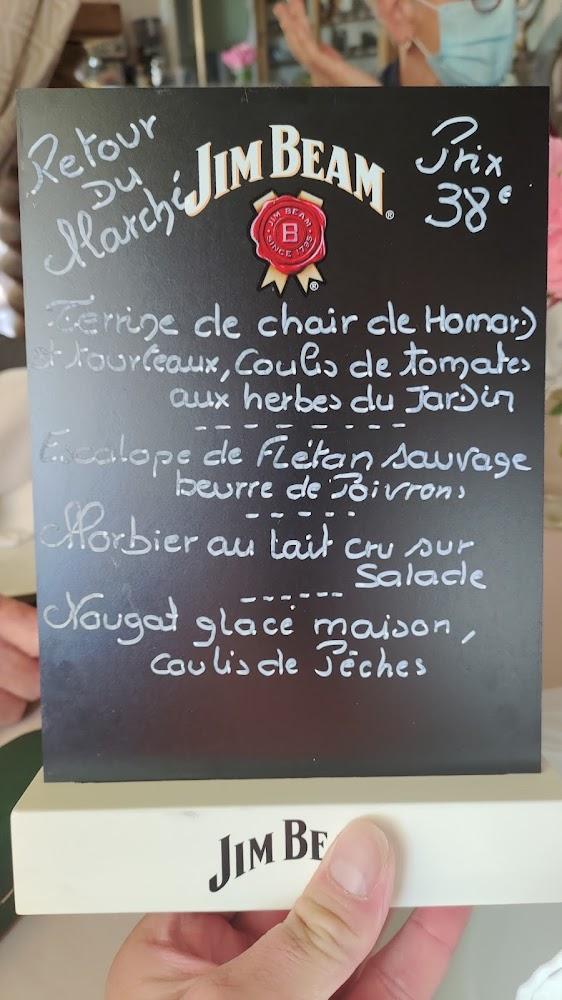 Retour
Du
Marché
JIM BEAM®
JIM BEAM
B
SINCE 1795
®
Prix
38€
Terrine de chair de Homard
et tourteaux, Coulis de tomates
aux herbes du Jardin
Escalope de Flétan sauvage
beurre de Poivrons
Morbier au lait cru sur
Salade
Nougat glacé maison,
Coulis de Pêches
JIM BE